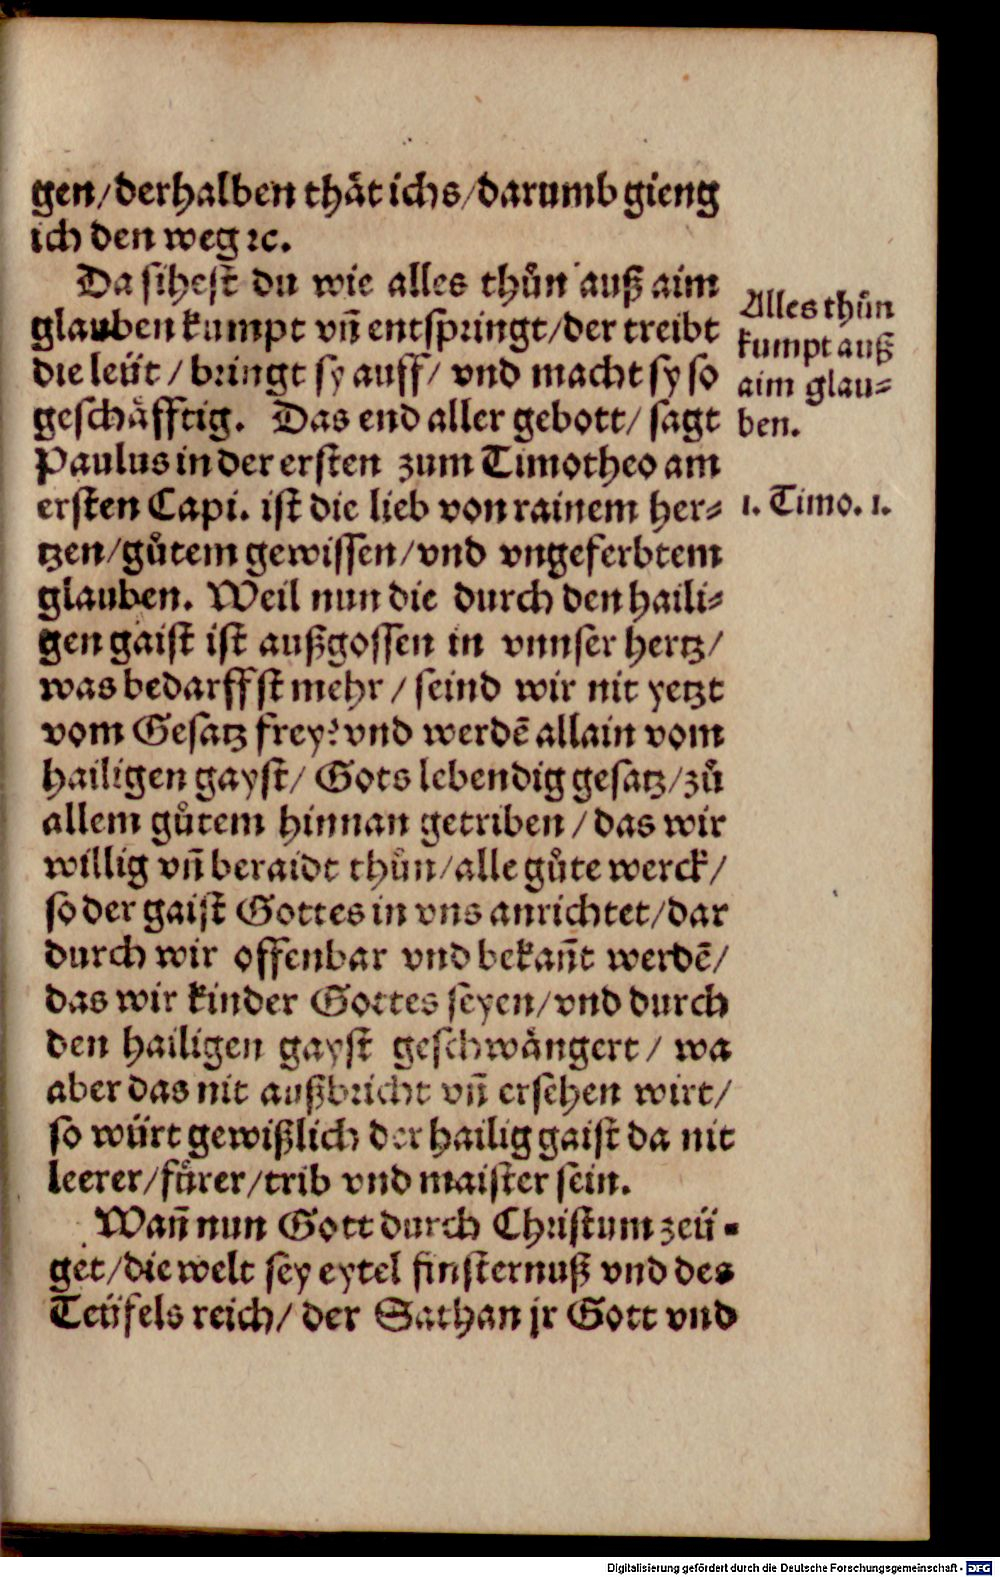 gen/derhalben thåt ichs/darumb gieng
ich den weg ꝛc.
Da sihest du wie alles thůn auß aim
glauben kumpt vn̄ entspringt/der treibt
die leüt / bringt sy auff/ vnd macht sy so
geschåfftig. Das end aller gebott/ sagt
Paulus in der ersten zum Timotheo am
ersten Capi. ist die lieb von rainem her⸗
tzen/gůtem gewissen/vnd vngeferbtem
glauben. Weil nun die durch den haili⸗
gen gaist ist außgossen in vnnser hertz/
was bedarffst mehr / seind wir nit yetzt
vom Gesatz frey? vnd werdē allain vom
hailigen gayst/ Gots lebendig gesatz/zů
allem gůtem hinnan getriben / das wir
willig vn̄ beraidt thůn/alle gůte werck/
so der gaist Gottes in vns anrichtet/dar
durch wir offenbar vnd bekan̄t werdē/
das wir kinder Gottes seyen/vnd durch
den hailigen gayst geschwångert / wa
aber das nit außbricht vn̄ ersehen wirt/
so würt gewißlich der hailig gaist da nit
leerer/fůrer/trib vnd maister sein.
Wan̄ nun Gott durch Christum zeü⸗
get/die welt sey eytel finsternuß vnd des
Teüfels reich/ der Sathan jr Gott vnd
Alles thůn
kumpt auß
aim glau⸗
ben.
1. Timo. 1.
Digitalisierung gefördert durch die Deutsche Forschungsgemeinschaft - DFG